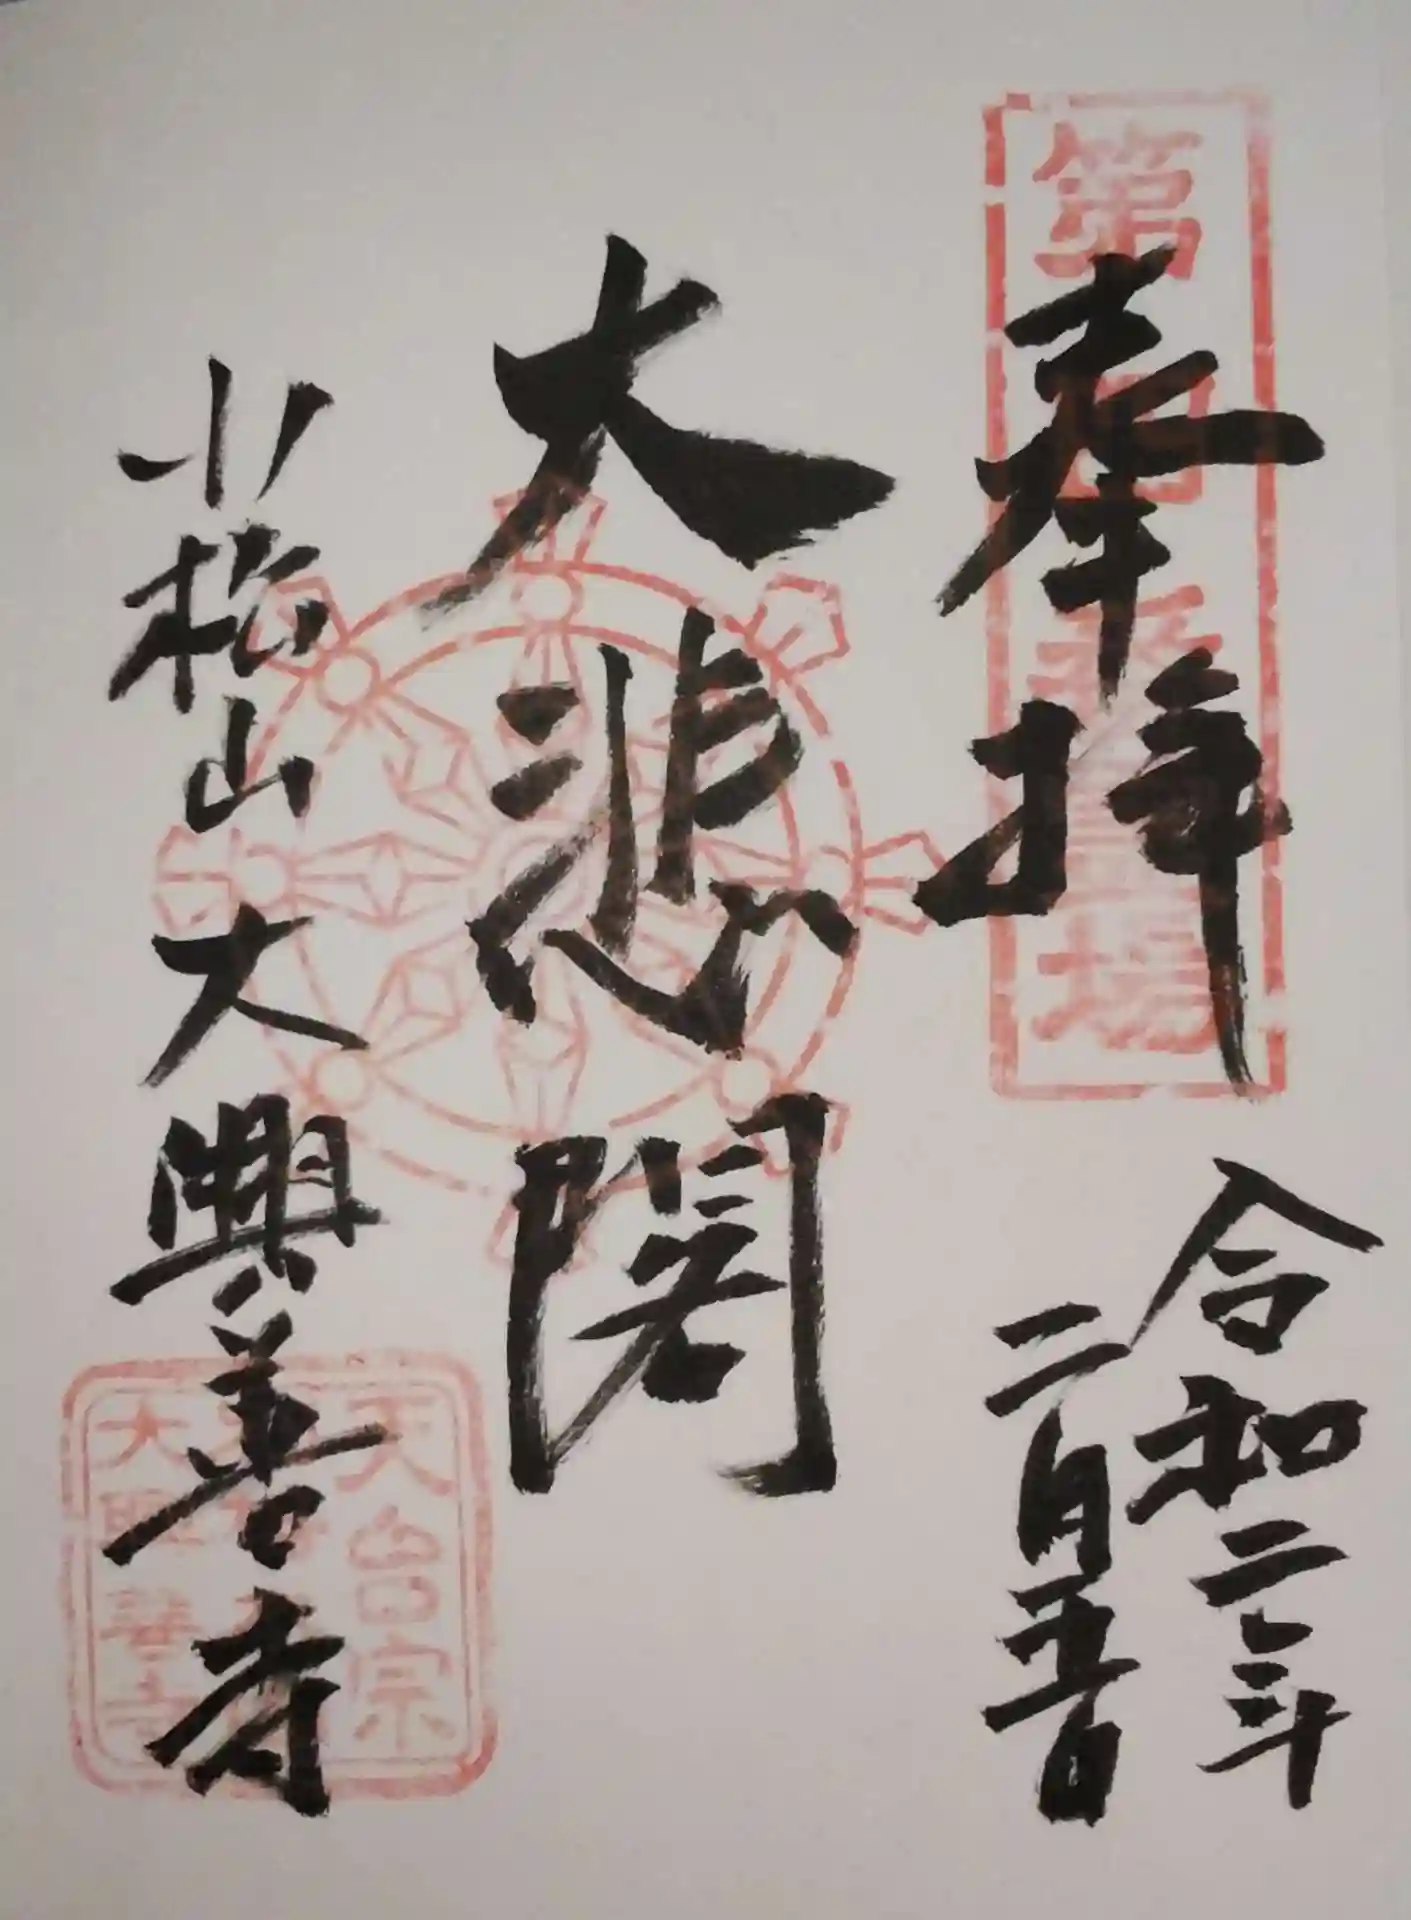 奉拝
令和二年
二月五日
大悲閣
小松山大興善寺
天台宗
大興善寺